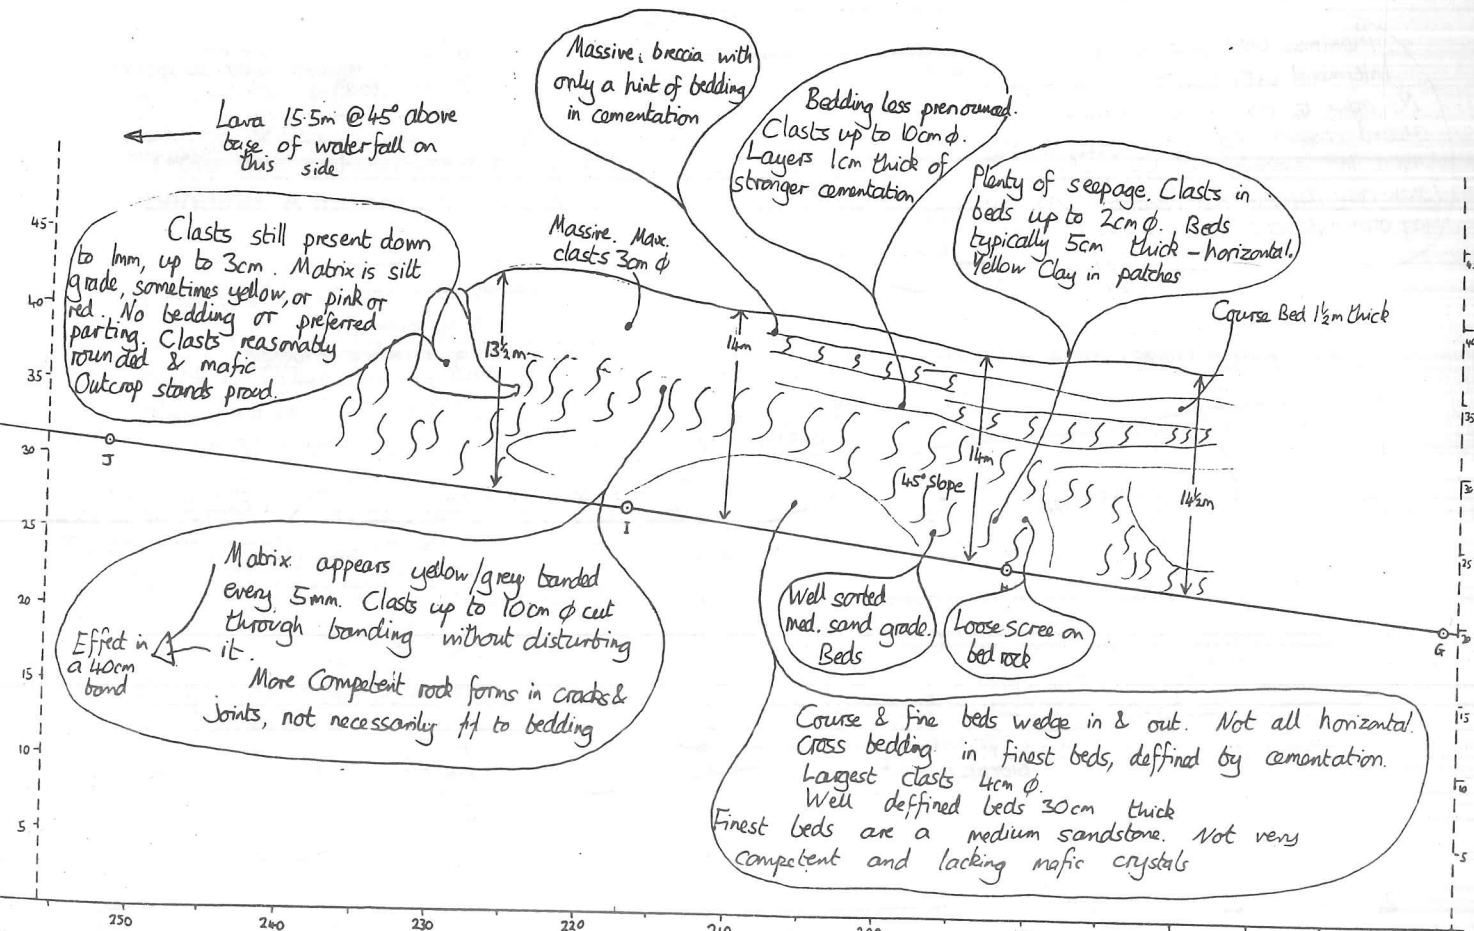 Massive, breccia with
only a hint of bedding
in cementation
Bedding less prenounced.
Clasts up to 10cm ϕ.
Layers 1cm thick of
stronger cementation
Lava 15.5m @ 45° above
base of waterfall on
this side
Plenty of seepage. Clasts in
beds up to 2cm ϕ. Beds
typically 5cm thick - horizontal.
Yellow Clay in patches
Clasts still present down
to 1mm, up to 3cm. Matrix is silt
grade, sometimes yellow, or pink or
red. No bedding or preferred
parting. Clasts reasonably
rounded & mafic
Outcrop stands proud.
Massive. Max.
clasts 3cm ϕ
Course Bed 1½m thick
13½m
14m
14m
14½m
45° slope
J
I
H
G
Matrix appears yellow/grey banded
every 5mm. Clasts up to 10cm ϕ cut
through banding without disturbing
it.
Effect in
a 40cm
band
More Competent rock forms in cracks &
joints, not necessarily // to bedding
Well sorted
med. sand grade.
Beds
Loose scree on
bed rock
Course & fine beds wedge in & out. Not all horizontal.
Cross bedding in finest beds, deffined by cementation.
Largest clasts 4cm ϕ.
Well deffined beds 30cm thick
Finest beds are a medium sandstone. Not very
competent and lacking mafic crystals
45
40
35
30
25
20
15
10
5
40
35
30
25
20
15
10
5
250
240
230
220
210
200